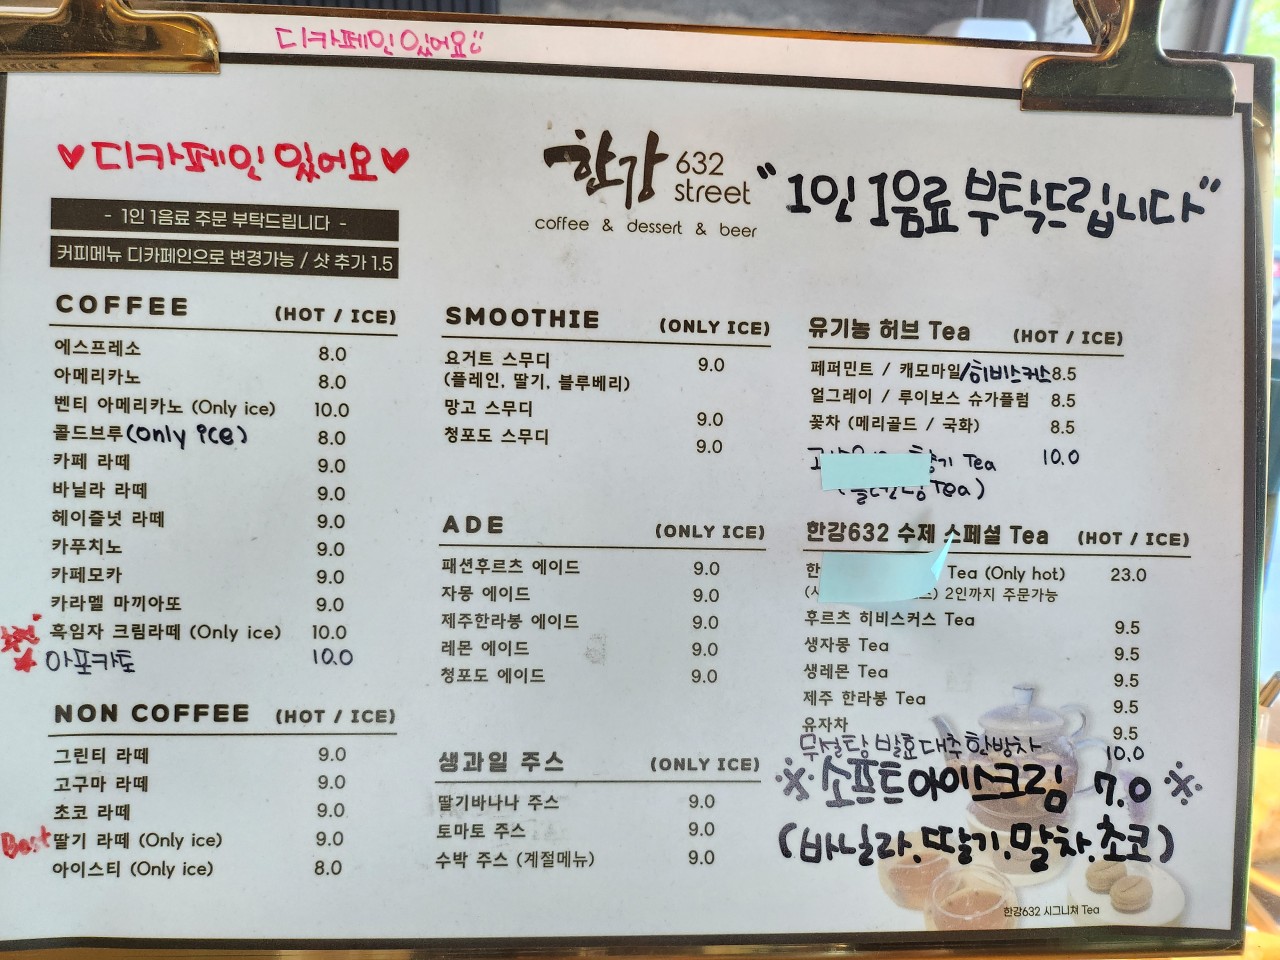 디카페인 있어요
디카페인 있어요
- 1인 1음료 주문 부탁드립니다 -
커피메뉴 디카페인으로 변경가능 / 샷 추가 1.5
한강 632 street
coffee & dessert & beer
"1인 1음료 부탁드립니다"
COFFEE (HOT / ICE)
에스프레소 8.0
아메리카노 8.0
벤티 아메리카노 (Only ice) 10.0
콜드브루 (only ice) 8.0
카페 라떼 9.0
바닐라 라떼 9.0
헤이즐넛 라떼 9.0
카푸치노 9.0
카페모카 9.0
카라멜 마끼아또 9.0
흑임자 크림라떼 (Only ice) 10.0
아포카토 10.0
NON COFFEE (HOT / ICE)
그린티 라떼 9.0
고구마 라떼 9.0
초코 라떼 9.0
Best 딸기 라떼 (Only ice) 9.0
아이스티 (Only ice) 8.0
SMOOTHIE (ONLY ICE)
요거트 스무디 9.0
(플레인, 딸기, 블루베리)
망고 스무디 9.0
청포도 스무디 9.0
ADE (ONLY ICE)
패션후르츠 에이드 9.0
자몽 에이드 9.0
제주한라봉 에이드 9.0
레몬 에이드 9.0
청포도 에이드 9.0
생과일 주스 (ONLY ICE)
딸기바나나 주스 9.0
토마토 주스 9.0
수박 주스 (계절메뉴) 9.0
유기농 허브 Tea (HOT / ICE)
페퍼민트 / 캐모마일/히비스커스 8.5
얼그레이 / 루이보스 슈가플럼 8.5
꽃차 (메리골드 / 국화) 8.5
향기 Tea 10.0
Tea)
한강632 수제 스페셜 Tea (HOT / ICE)
한 Tea (Only hot) 23.0
2인까지 주문가능
후르츠 히비스커스 Tea 9.5
생자몽 Tea 9.5
생레몬 Tea 9.5
제주 한라봉 Tea 9.5
유자차 9.5
무설탕 발효대추한방차 10.0
※ 소프트아이스크림 7.0 ※
(바닐라, 딸기, 말차, 초코)
한강632 시그니처 Tea